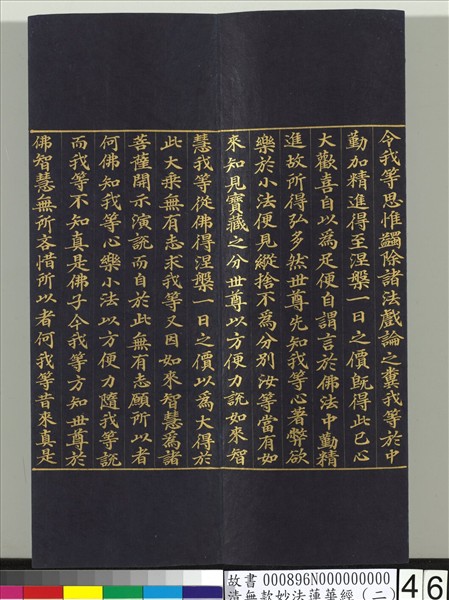 令我等思惟蠲除諸法戲論之糞我等於中
勤加精進得至涅槃一日之價既得此已心
大歡喜自以為足便自謂言於佛法中勤精
進故所得弘多然世尊先知我等心著弊欲
樂於小法便見縱捨不為分別汝等當有如
來知見寶藏之分世尊以方便力說如來智
慧我等從佛得涅槃一日之價以為大得於
此大乘無有志求我等又因如來智慧為諸
菩薩開示演說而自於此無有志願所以者
何佛知我等心樂小法以方便力隨我等說
而我等不知真是佛子今我等方知世尊於
佛智慧無所吝惜所以者何我等昔來真是
故書 000896N000000000
清無款妙法蓮華經（二）
46